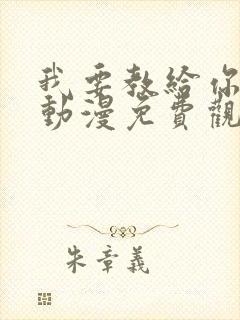 我要教給你
動漫免費觀
朱章義